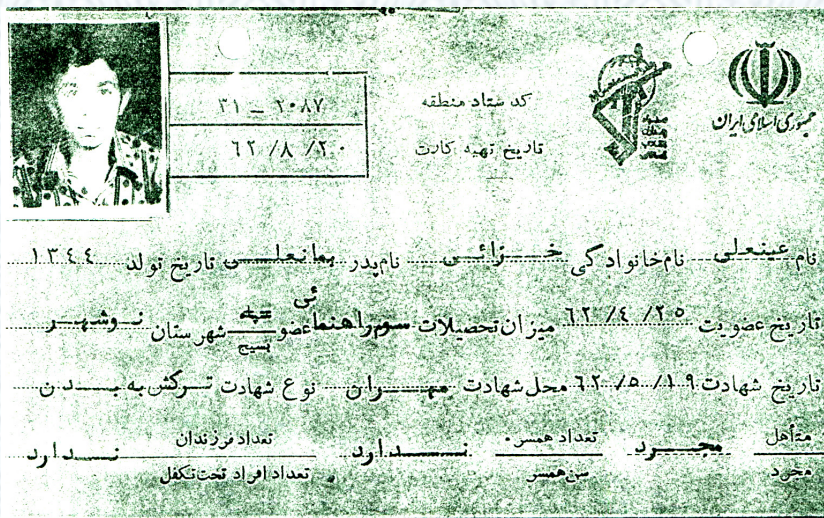 جمهوری اسلامی ایران
کد ستاد منطقه ۲۰۸۷ – ۳۱
تاریخ تهیه کارت ۶۲/۸/۲۰
نام عینعلی نام‌خانوادگی خزائی نام‌پدر یمانعلی تاریخ تولد ۱۳۴۴
تاریخ عضویت ۶۲/۴/۲۵ میزان تحصیلات سوم راهنمائی عضو سپاه بسیج شهرستان نوشهر
تاریخ شهادت ۶۲/۵/۱۹ محل شهادت مهران نوع شهادت ترکش به بدن
متأهل مجرد مجرد تعداد همسر سن همسر ندارد تعداد فرزندان تعداد افراد تحت تکفل ندارد